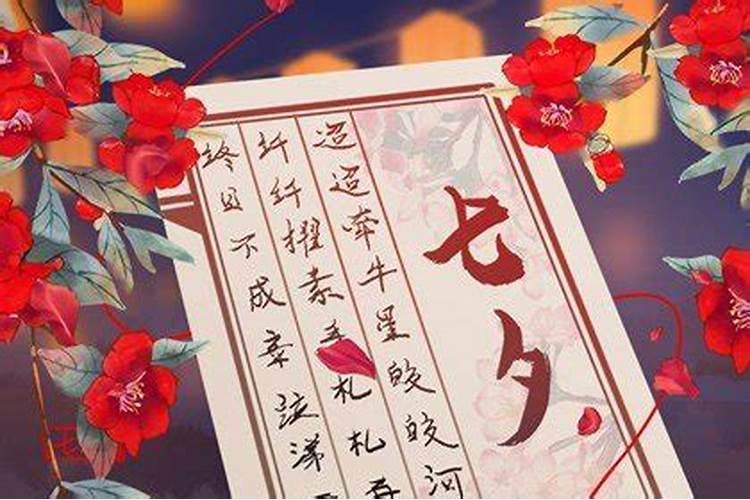 七夕
迢迢牵牛星皎皎河
纤纤擢素札札
终日不成章泣涕